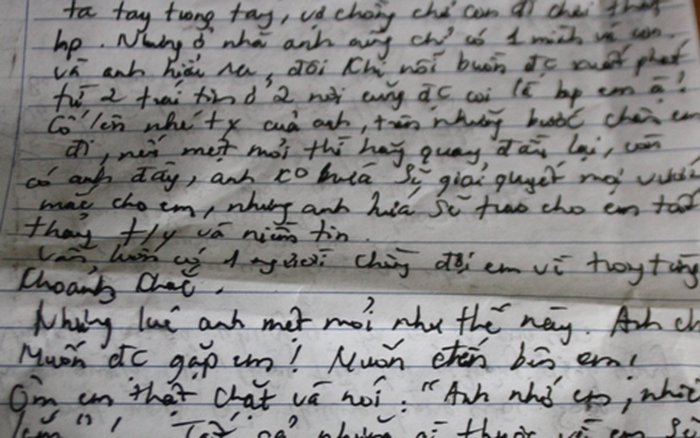 ta tay trong tay, vợ chồng chở con đi chơi thật
hp. Nhưng ở nhà anh cũng chỉ có 1 mình và con.
và anh hiểu ra, đôi khi nỗi buồn đc xuất phát
từ 2 trái tim ở 2 nơi cũng đc coi là hp em ạ!
Cố lên nhé ty của anh, trên những bước chân em
đi, nếu mệt mỏi thì hãy quay đầu lại, vẫn
có anh đây, anh ko hứa sẽ giải quyết mọi vướng
mắc cho em, nhưng anh hứa sẽ trao cho em tất
thảy t/y và niềm tin.
Vẫn luôn có 1 người chồng đợi em về trong từng
khoảnh khắc.
Những lúc anh mệt mỏi như thế này. Anh ch
Muốn đc gặp em! Muốn đến bên em!
Ôm em thật chặt và nói: "Anh nhớ em, nhiề
lắm"! Tất cả những gì thuộc về em